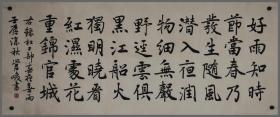 好雨知時
節當春乃
發生随風
潛入夜潤
物細無聲
野逕雲俱
黑江船火
獨明曉看
紅濕處花
重錦官城
右録杜工部春夜喜雨
壬辰深秋管峻書